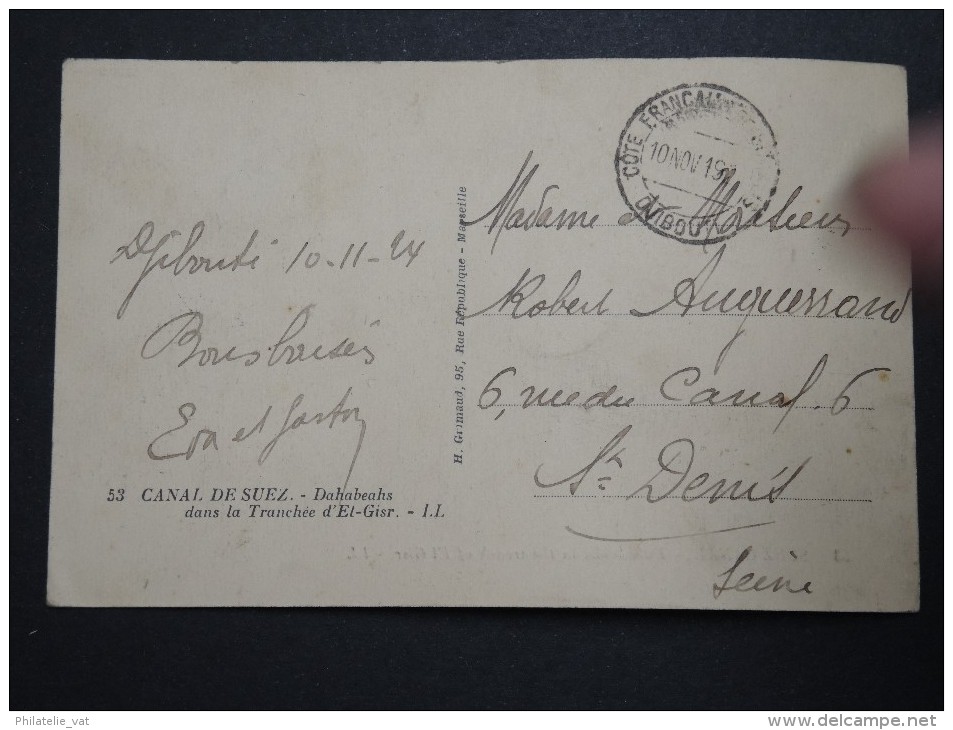 Djibouti 10-11-24
Bons baisers
Eva et Gaston
53 CANAL DE SUEZ. - Dahabeahs
dans la Tranchée d'El-Gisr. - LL
H. Grimaud, 95, Rue République - Marseille
CÔTE FRANÇAISE
10 NOV 19
DJIBOUTI
Madame et Monsieur
Robert Anguerrand
6, rue du Canal. 6
St Denis
Seine
Philatelie_vat
www.delcampe.net